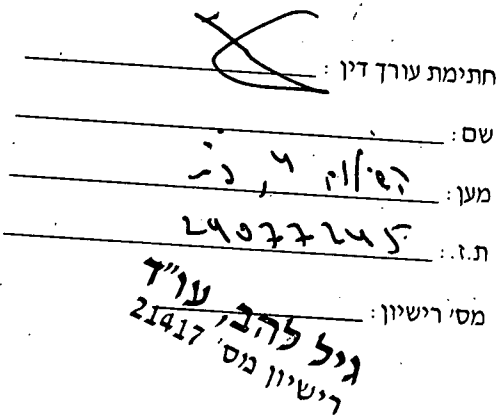 חתימת עורך דין :
שם :
מען : השילוח 4, פת
ת.ז. : 24077245
מס' רישיון :
גיל להב, עו"ד
רישיון מס' 21417